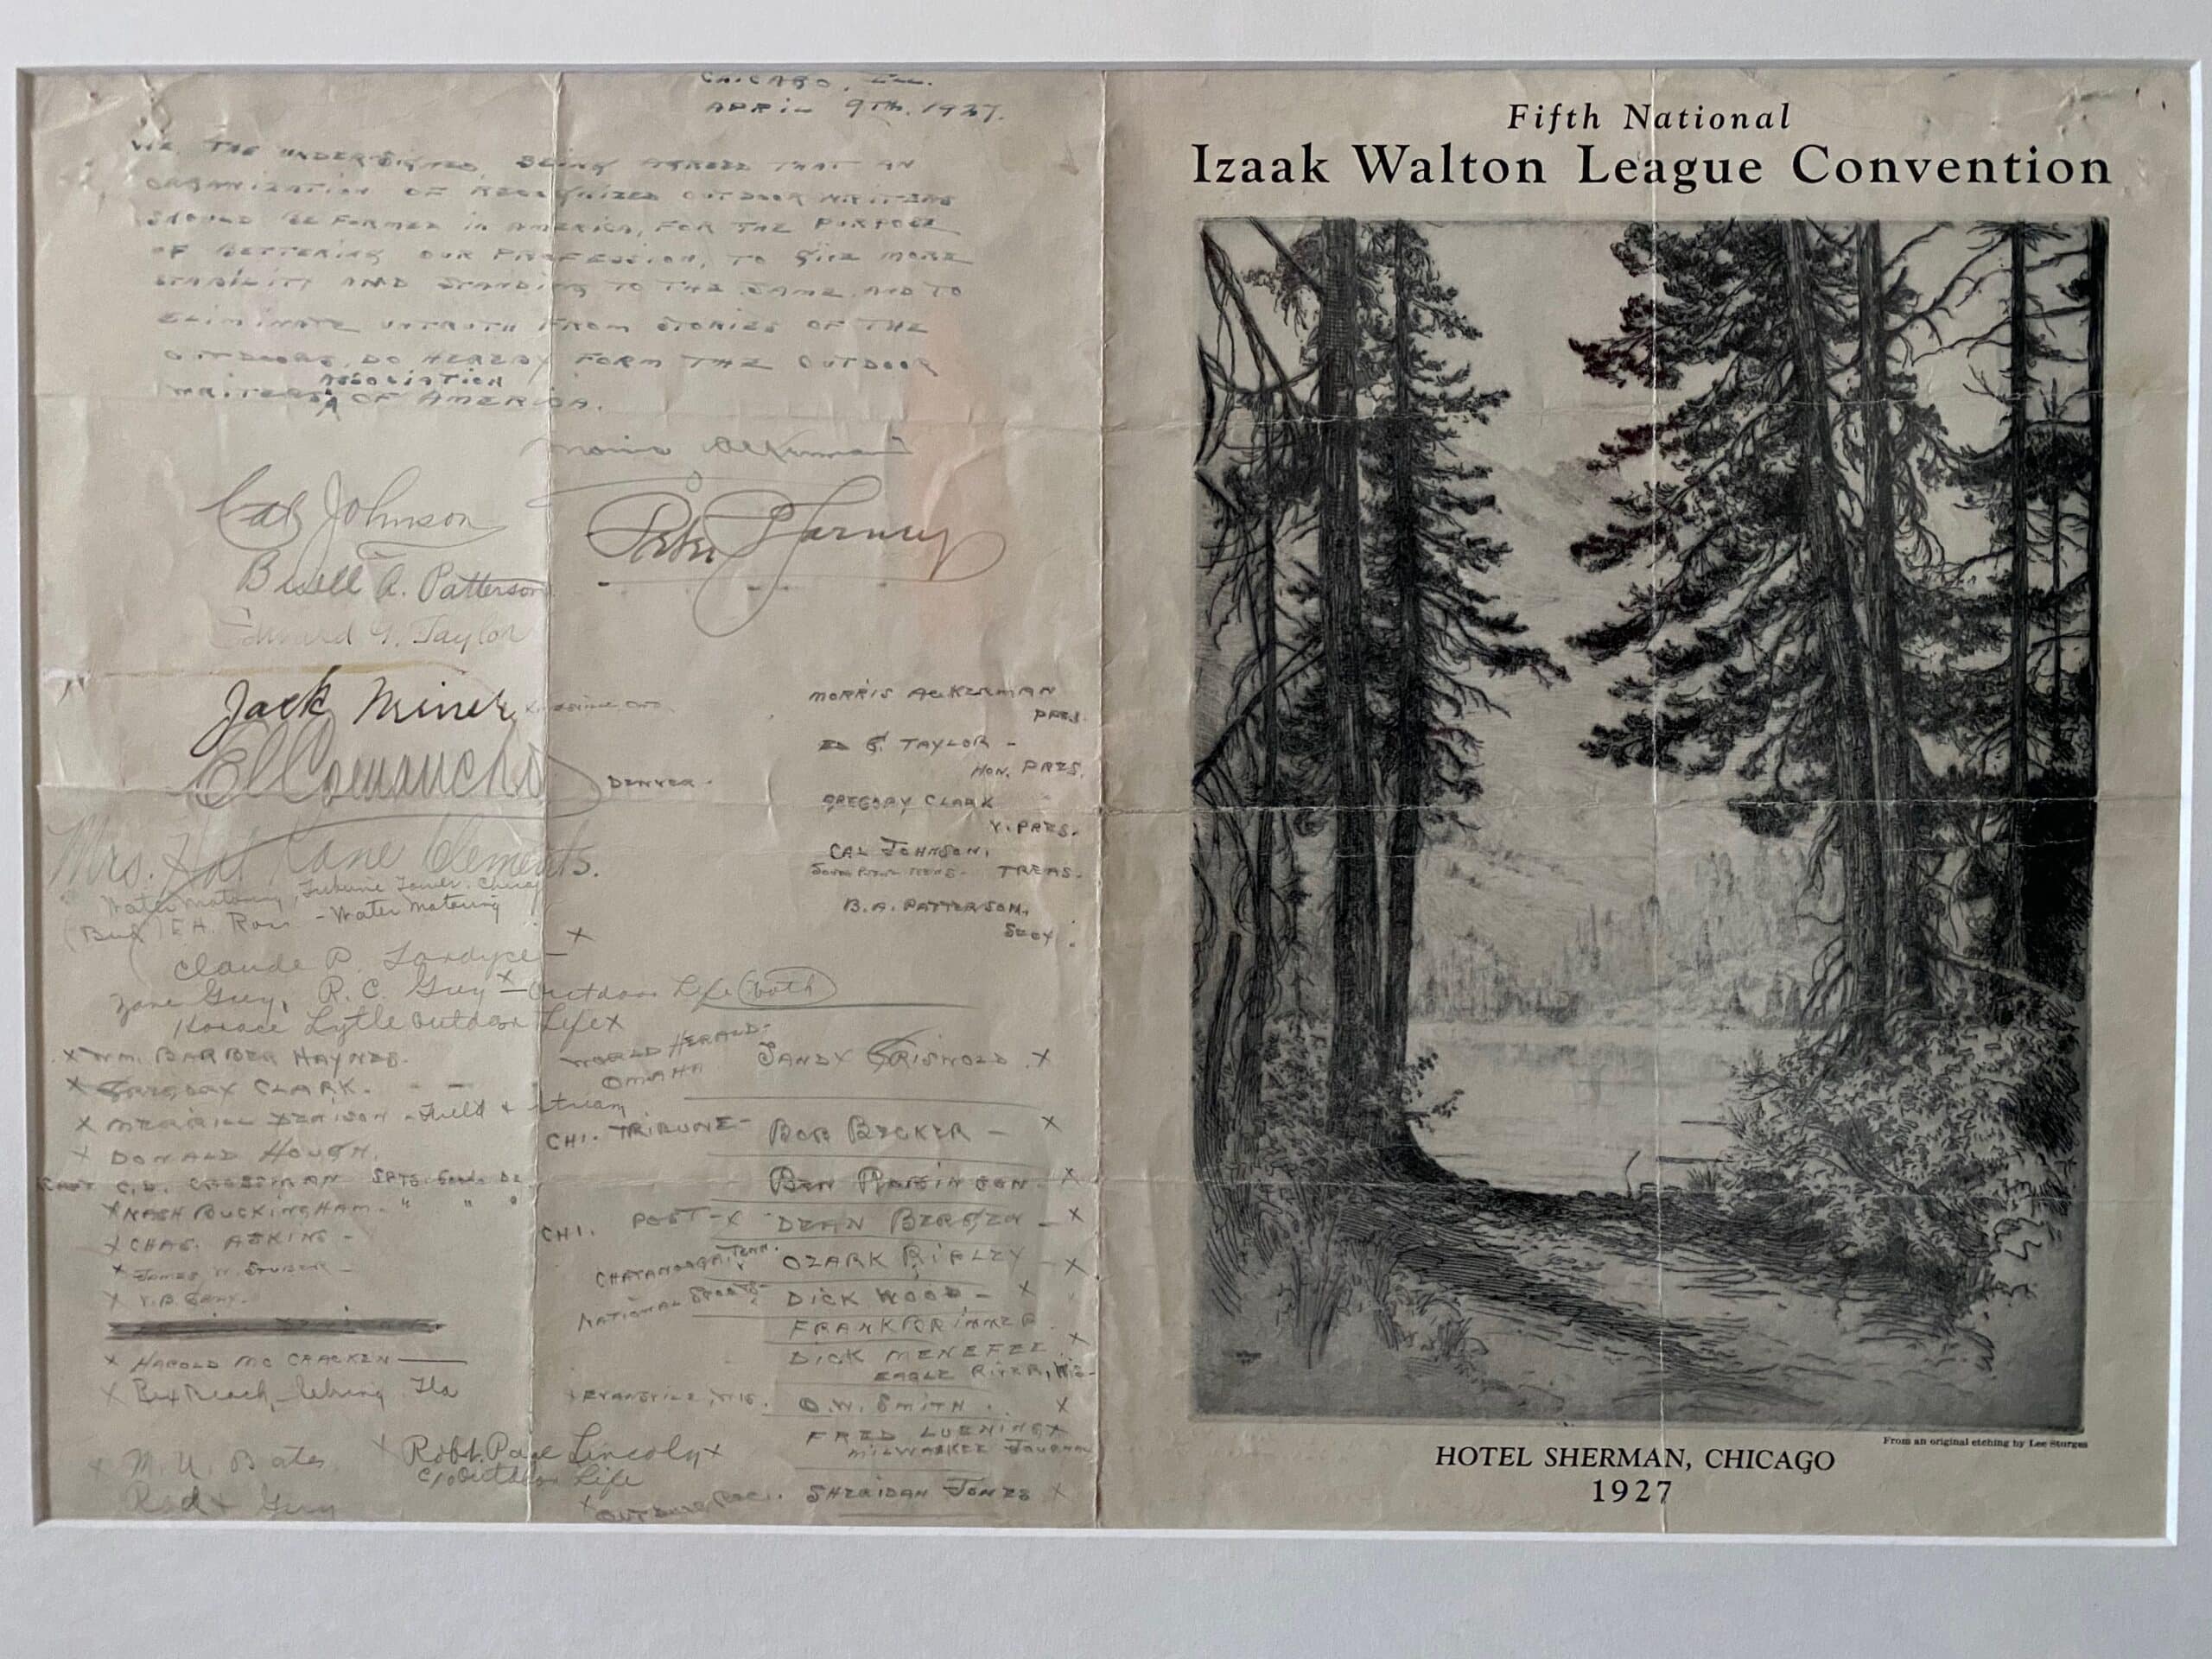 CHICAGO, ILL.
APRIL 9TH. 1927.
WE, THE UNDERSIGNED, BEING AGREED THAT AN
ORGANIZATION OF RECOGNIZED OUTDOOR WRITERS
SHOULD BE FORMED IN AMERICA, FOR THE PURPOSE
OF BETTERING OUR PROFESSION, TO GIVE MORE
STABILITY AND STANDING TO THE SAME AND TO
ELIMINATE UNTRUTH FROM STORIES OF THE
OUTDOORS, DO HEREBY FORM THE OUTDOOR
ASSOCIATION
WRITERS OF AMERICA.
Morris Ackerman
Cal Johnson
Peter P. Carney
Buell A. Patterson
Edward G. Taylor
Jack Miner
El Comancho
DENVER.
Mrs. Hal Kane Clements.
Water Motoring, Tribune Tower. Chicag
(Bud) E.H. Ross - Water Motoring
MORRIS ACKERMAN
PRES.
ED G. TAYLOR -
HON. PRES.
GREGORY CLARK
V. PRES.
CAL JOHNSON,
TREAS.
B.A. PATTERSON,
SECY.
Claude P. Fordyce - X
Zane Grey, R.C. Grey X - Outdoor Life (both)
Horace Lytle Outdoor Life X
X WM. BARBER HAYNES.
X GREGORY CLARK.
X MERRILL DENISON - Field & Stream
X DONALD HOUGH.
CAPT. C.D. CROSSMAN SPTS. GOODS DE
X NASH BUCKINGHAM - " " "
X CHAS. ASKINS -
X JAMES W. STUBER -
X
X HAROLD MC CRACKEN
X Rex Beach, Sebring Fla
X M. U. Bates
X Robt. Page Lincoln X
c/o Outdoor Life
WORLD HERALD - OMAHA
SANDY GRISWOLD. X
CHI. TRIBUNE - BOB BECKER - X
BEN ROBINSON - X
CHI. POST - X DEAN BERGEN - X
CHATANOOGA, TENN. OZARK RIPLEY - X
NATIONAL SPORTS - DICK WOOD - X
FRANK BRIMMER.
DICK MENEFEE X
EAGLE RIVER, WIS-
X EVANSVILLE, WIS. O.W. SMITH. X
FRED LUENING X
MILWAUKEE JOURNAL
X OUTDOOR REC. SHERIDAN JONES X
Fifth National
Izaak Walton League Convention
From an original etching by Lee Sturges
HOTEL SHERMAN, CHICAGO
1927